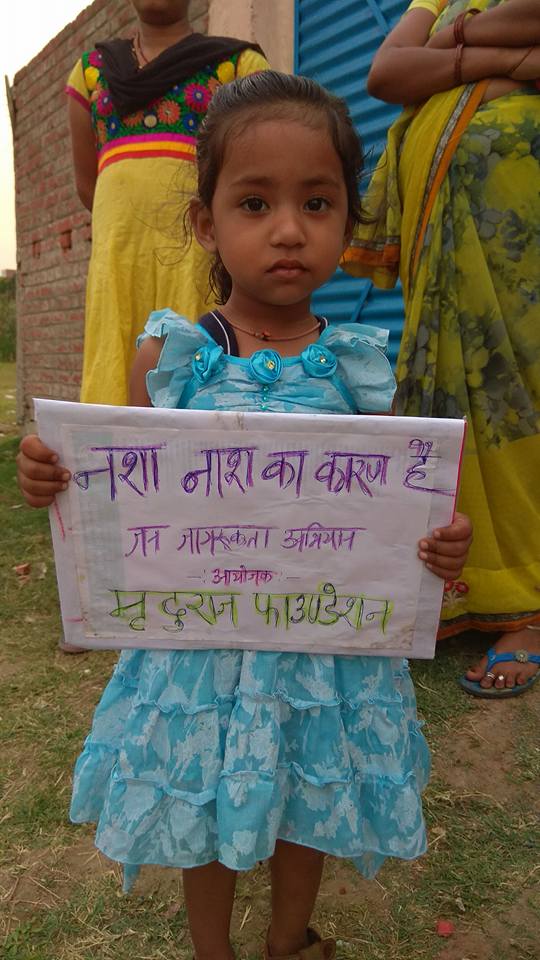 नशा नाश का कारण है
जन जागरूकता अभियान
-: आयोजक :-
मृदुराज फाउण्डेशन